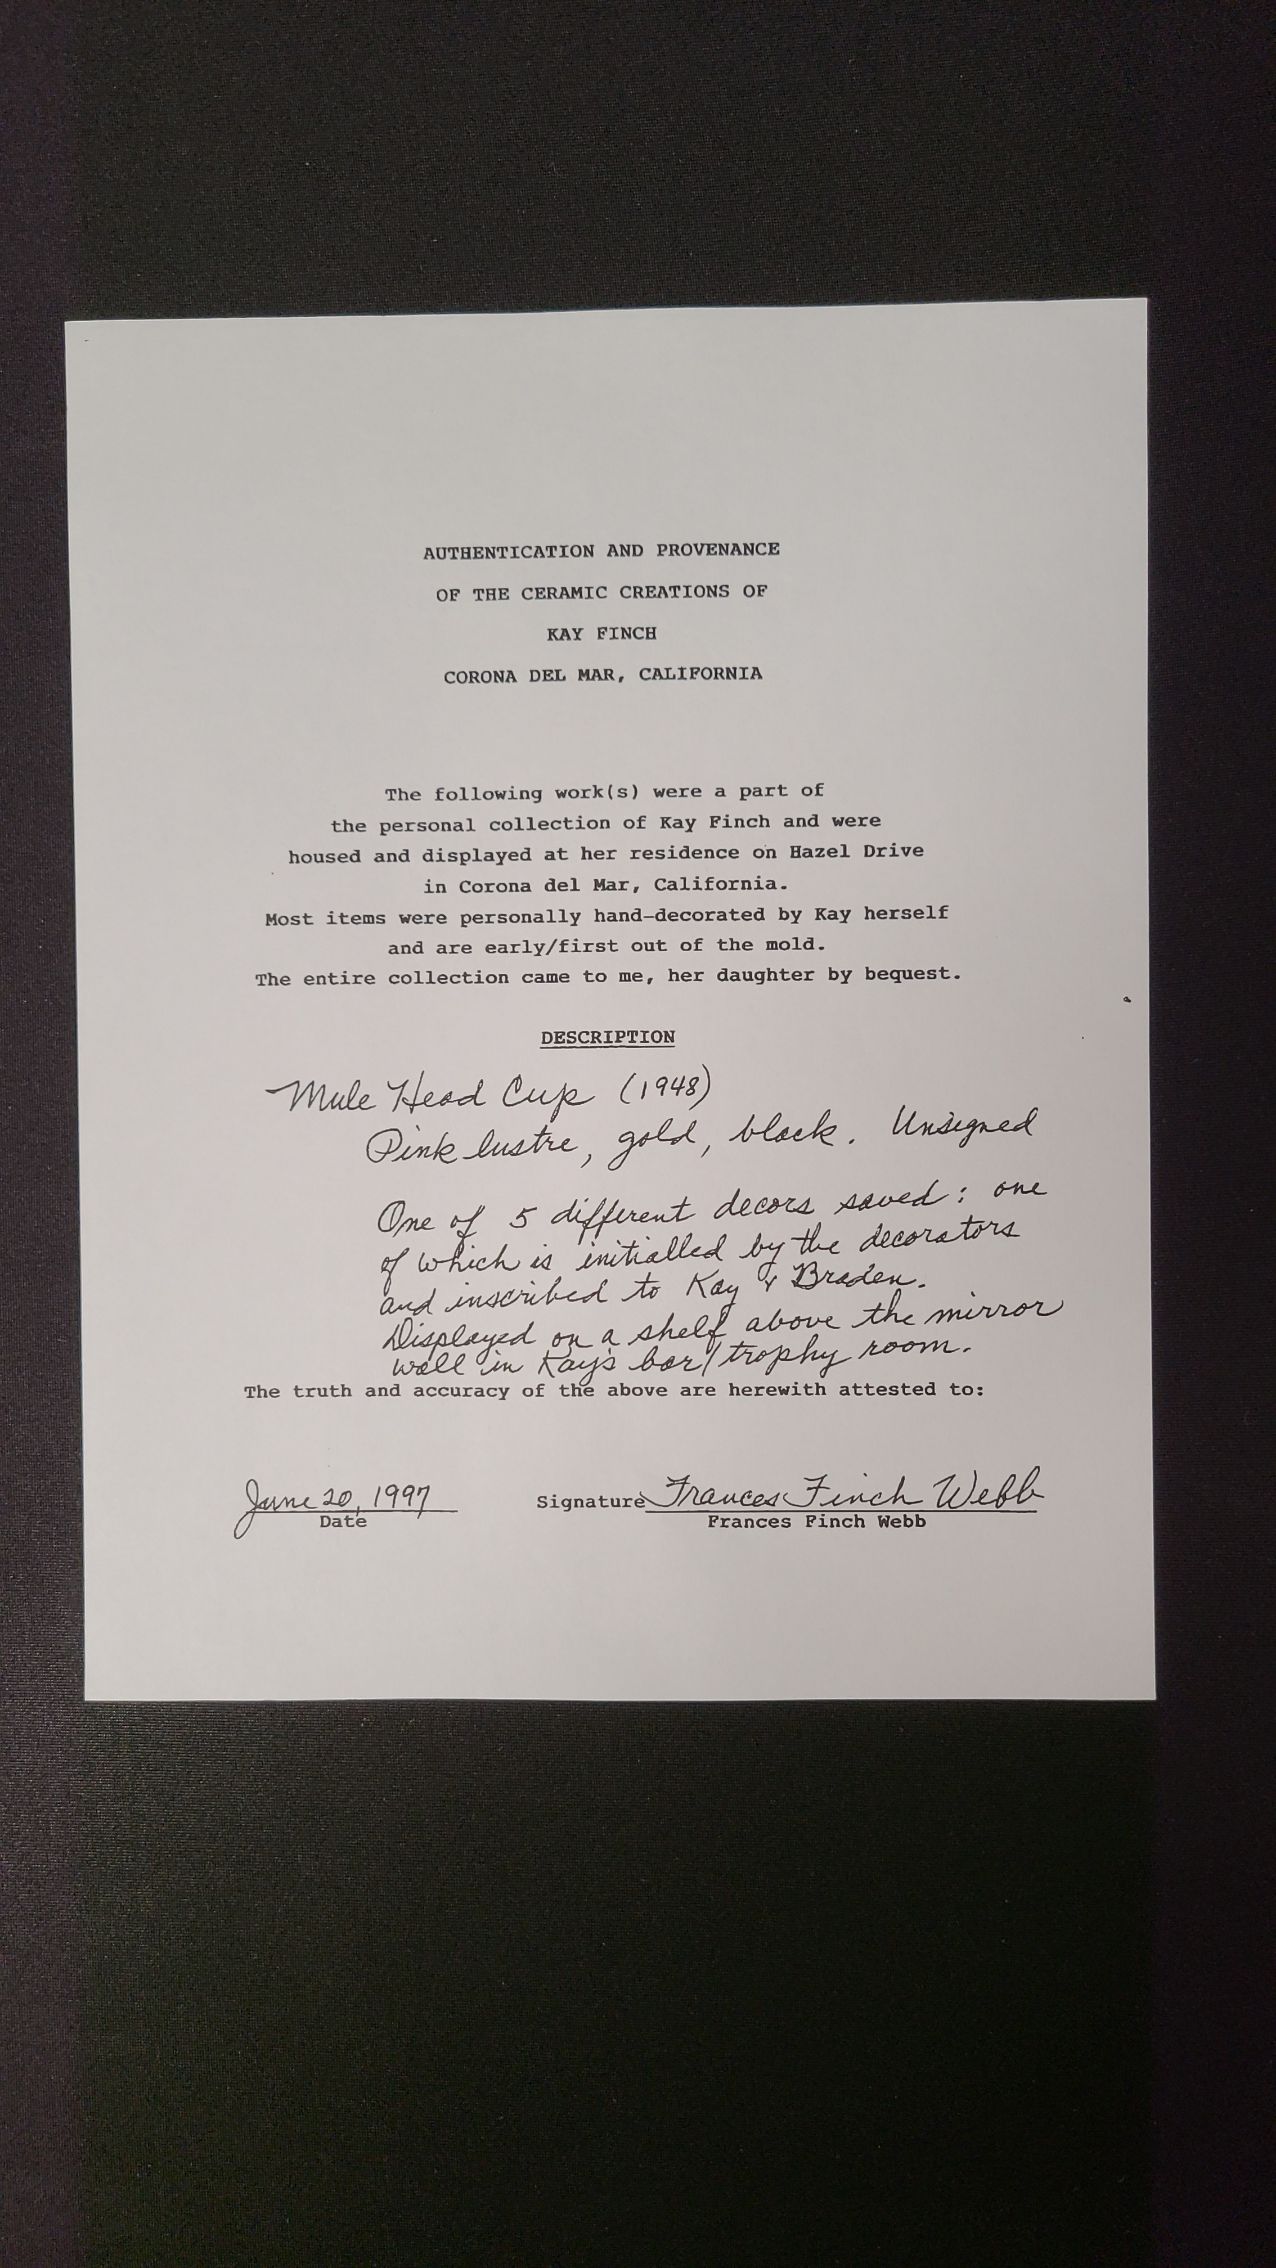 AUTHENTICATION AND PROVENANCE
OF THE CERAMIC CREATIONS OF
KAY FINCH
CORONA DEL MAR, CALIFORNIA
The following work(s) were a part of
the personal collection of Kay Finch and were
housed and displayed at her residence on Hazel Drive
in Corona del Mar, California.
Most items were personally hand-decorated by Kay herself
and are early/first out of the mold.
The entire collection came to me, her daughter by bequest.
DESCRIPTION
Mule Head Cup (1948)
Pink lustre, gold, black. Unsigned
One of 5 different decors saved: one
of which is initialled by the decorators
and inscribed to Kay & Braden.
Displayed on a shelf above the mirror
wall in Kay's bar/trophy room.
The truth and accuracy of the above are herewith attested to:
June 20, 1997 Signature Frances Finch Webb
Date Frances Finch Webb